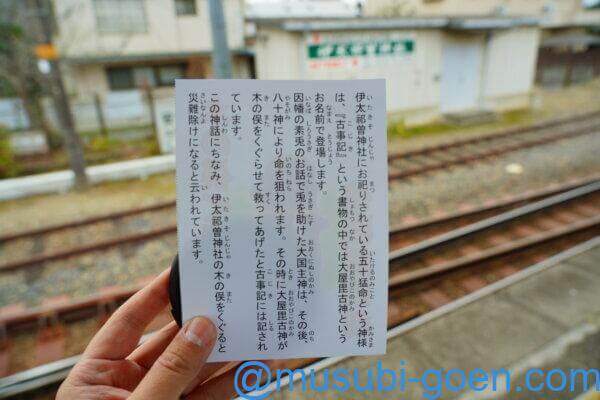 伊太祁曽神社
伊太祁曽神社にお祀りされている五十猛命という神様
は、『古事記』という書物の中では大屋毘古神という
お名前で登場します。
因幡の素兎のお話で兎を助けた大国主神は、その後、
八十神により命を狙われます。その時に大屋毘古神が
木の俣をくぐらせて救ってあげたと古事記には記され
ています。
この神話にちなみ、伊太祁曽神社の木の俣をくぐると
災難除けになると云われています。
@musubi-goen.com